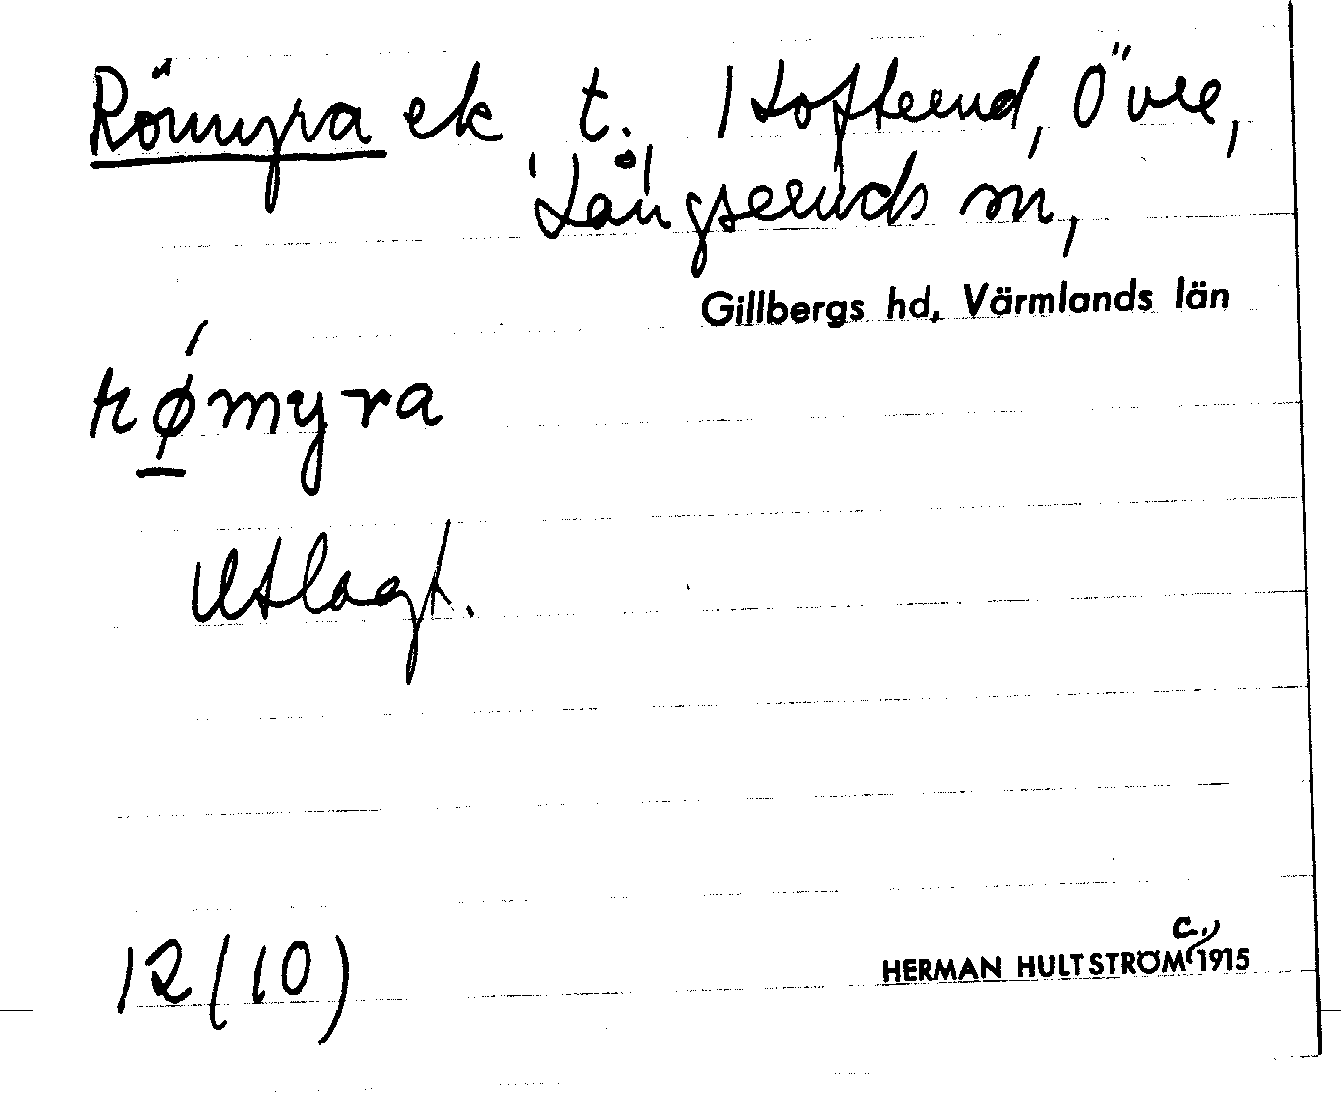 Römyra ek t. Hofterud, Övre,
Långseruds sn,
Gillbergs hd, Värmlands län
rǿ̱myra
Utlagt.
12 (10)
HERMAN HULTSTRÖM c. 1915